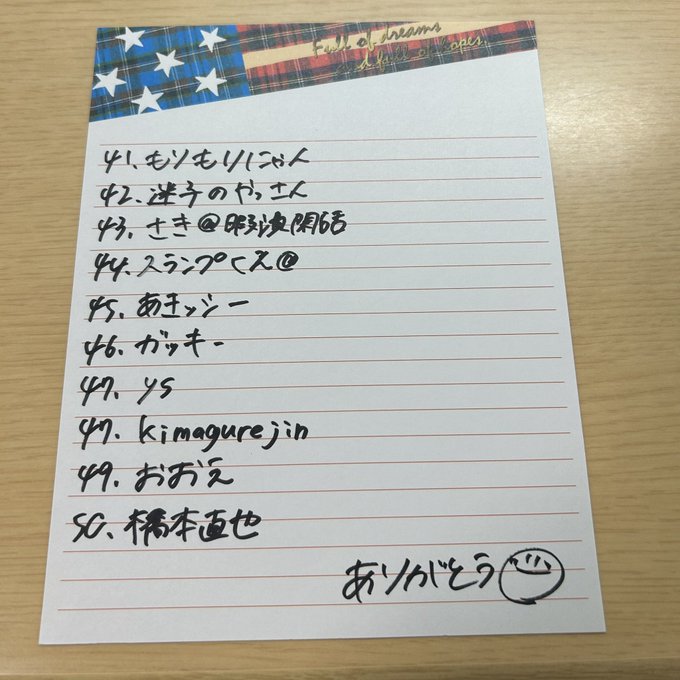 Full of dreams
and full of hopes.
41. もりもりにゃん
42. 迷子のやっさん
43. さき@
44. スランプくえ@
45. あきッシー
46. ガッキー
47. ys
47. kimagurejin
49. おおえ
50. 橋本直也
ありがとう